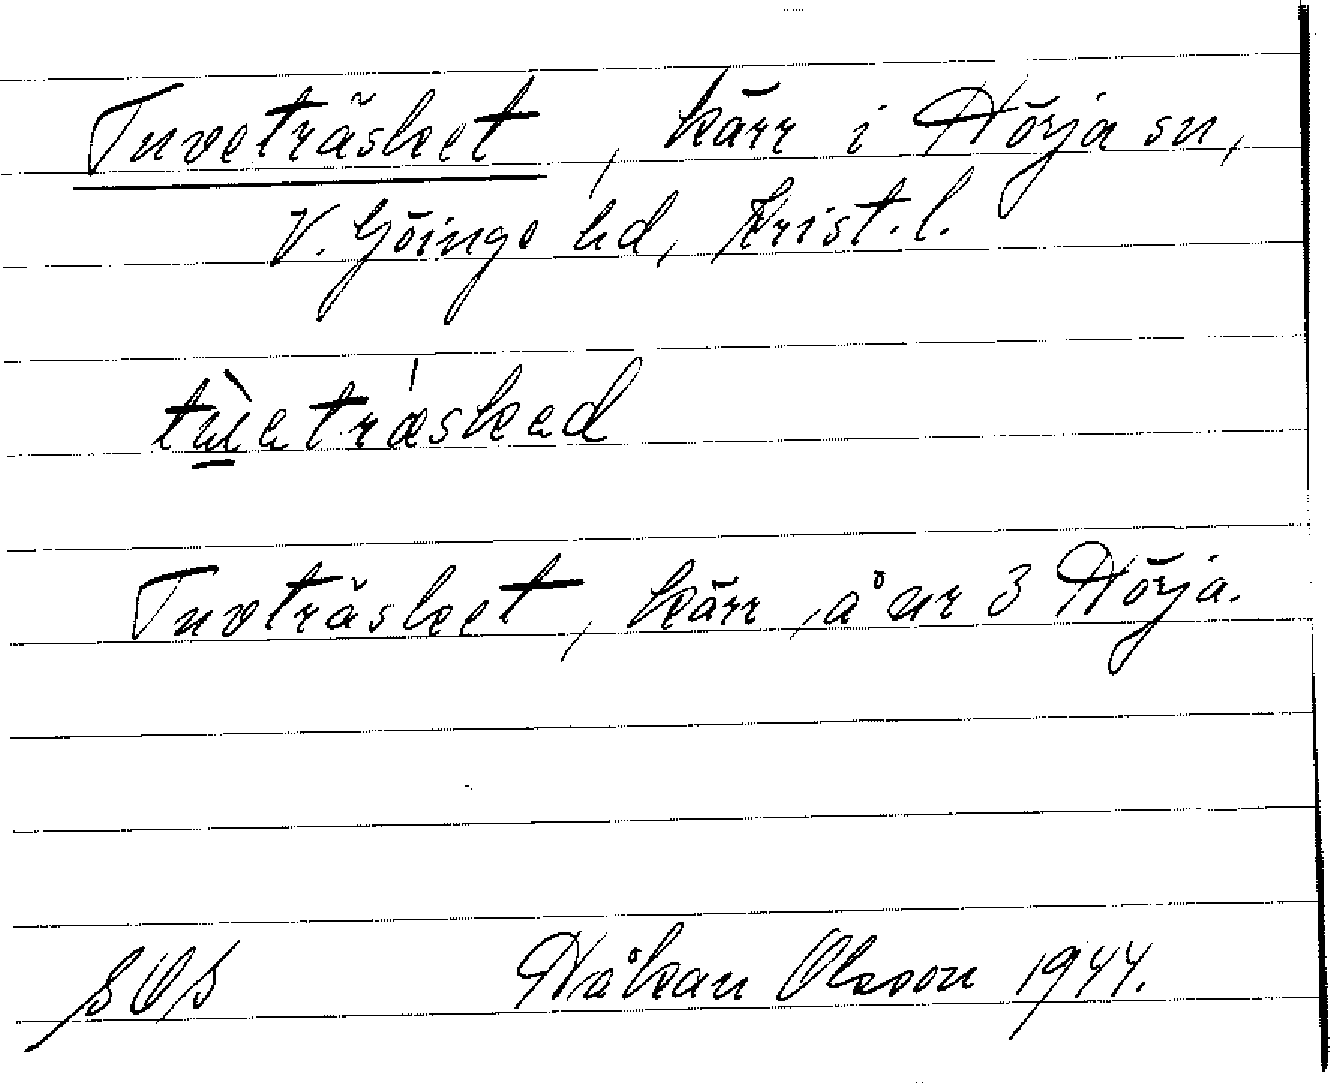 Tuveträsket, kärr i Hörja sn,
V. Göinge hd, Krist. l.
Tuvträsket, kärr, å nr 3 Hörja.
SOS Håkan Olsson 1944.